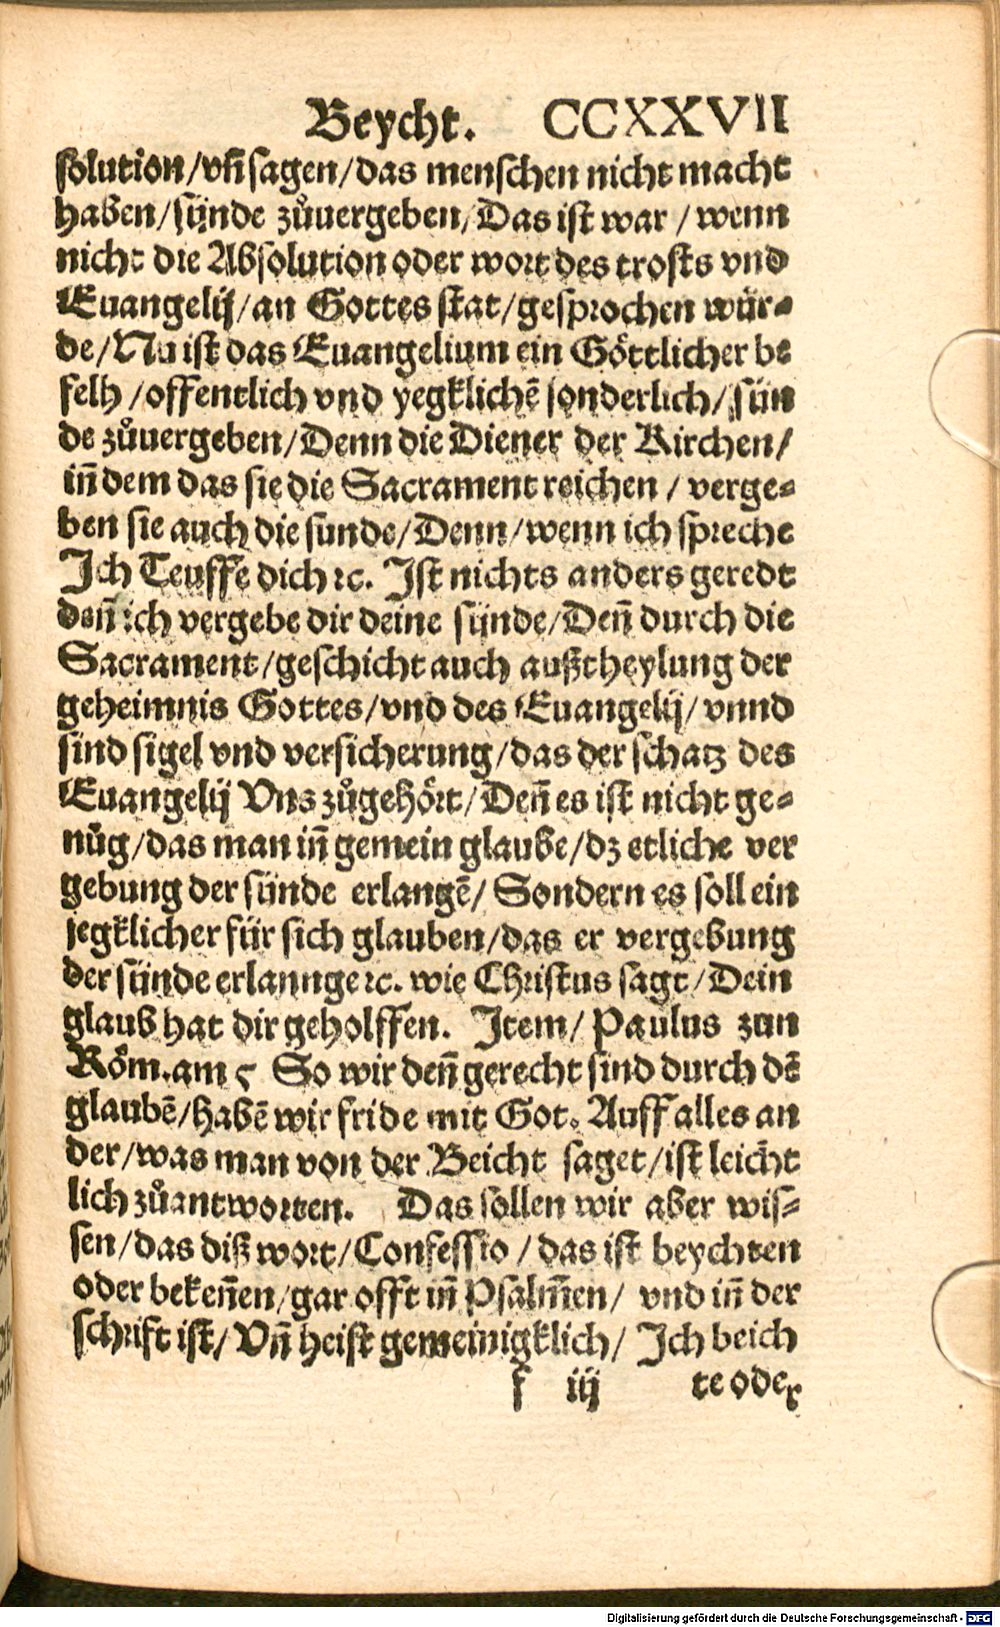 Beycht. CCXXVII
solution/vñ sagen/das menschen nicht macht
haben/sünde zůuergeben/Das ist war/wenn
nicht die Absolution oder wort des trosts vnd
Euangelij/an Gottes stat/gesprochen wür-
de/Nu ist das Euangelium ein Göttlicher be
felh/offentlich vnd yegklichē sonderlich/sün
de zůuergeben/Denn die Diener der Kirchen/
iñ dem das sie die Sacrament reichen/verge-
ben sie auch die sunde/Denn/wenn ich spreche
Ich Teuffe dich ꝛc. Ist nichts anders geredt
deñ ich vergebe dir deine sünde/Deñ durch die
Sacrament/geschicht auch außtheylung der
geheimnis Gottes/vnd des Euangelij/vnnd
sind sigel vnd versicherung/das der schatz des
Euangelij Vns zůgehört/Deñ es ist nicht ge-
nůg/das man iñ gemein glaube/dz etliche ver
gebung der sünde erlangē/Sondern es soll ein
jegklicher für sich glauben/das er vergebung
der sünde erlannge ꝛc. wie Christus sagt/Dein
glaub hat dir geholffen. Item/Paulus zun
Röm. am 5 So wir deñ gerecht sind durch dē
glaubē/habē wir fride mit Got. Auff alles an
der/was man von der Beicht saget/ist leicht
lich zůantworten. Das sollen wir aber wis-
sen/das diß wort/Confessio/das ist beychten
oder bekeñen/gar offt iñ Psalm̃en/vnd iñ der
schrift ist/Vñ heist gemeinigklich/Ich beich
f iij te oder
Digitalisierung gefördert durch die Deutsche Forschungsgemeinschaft - DFG